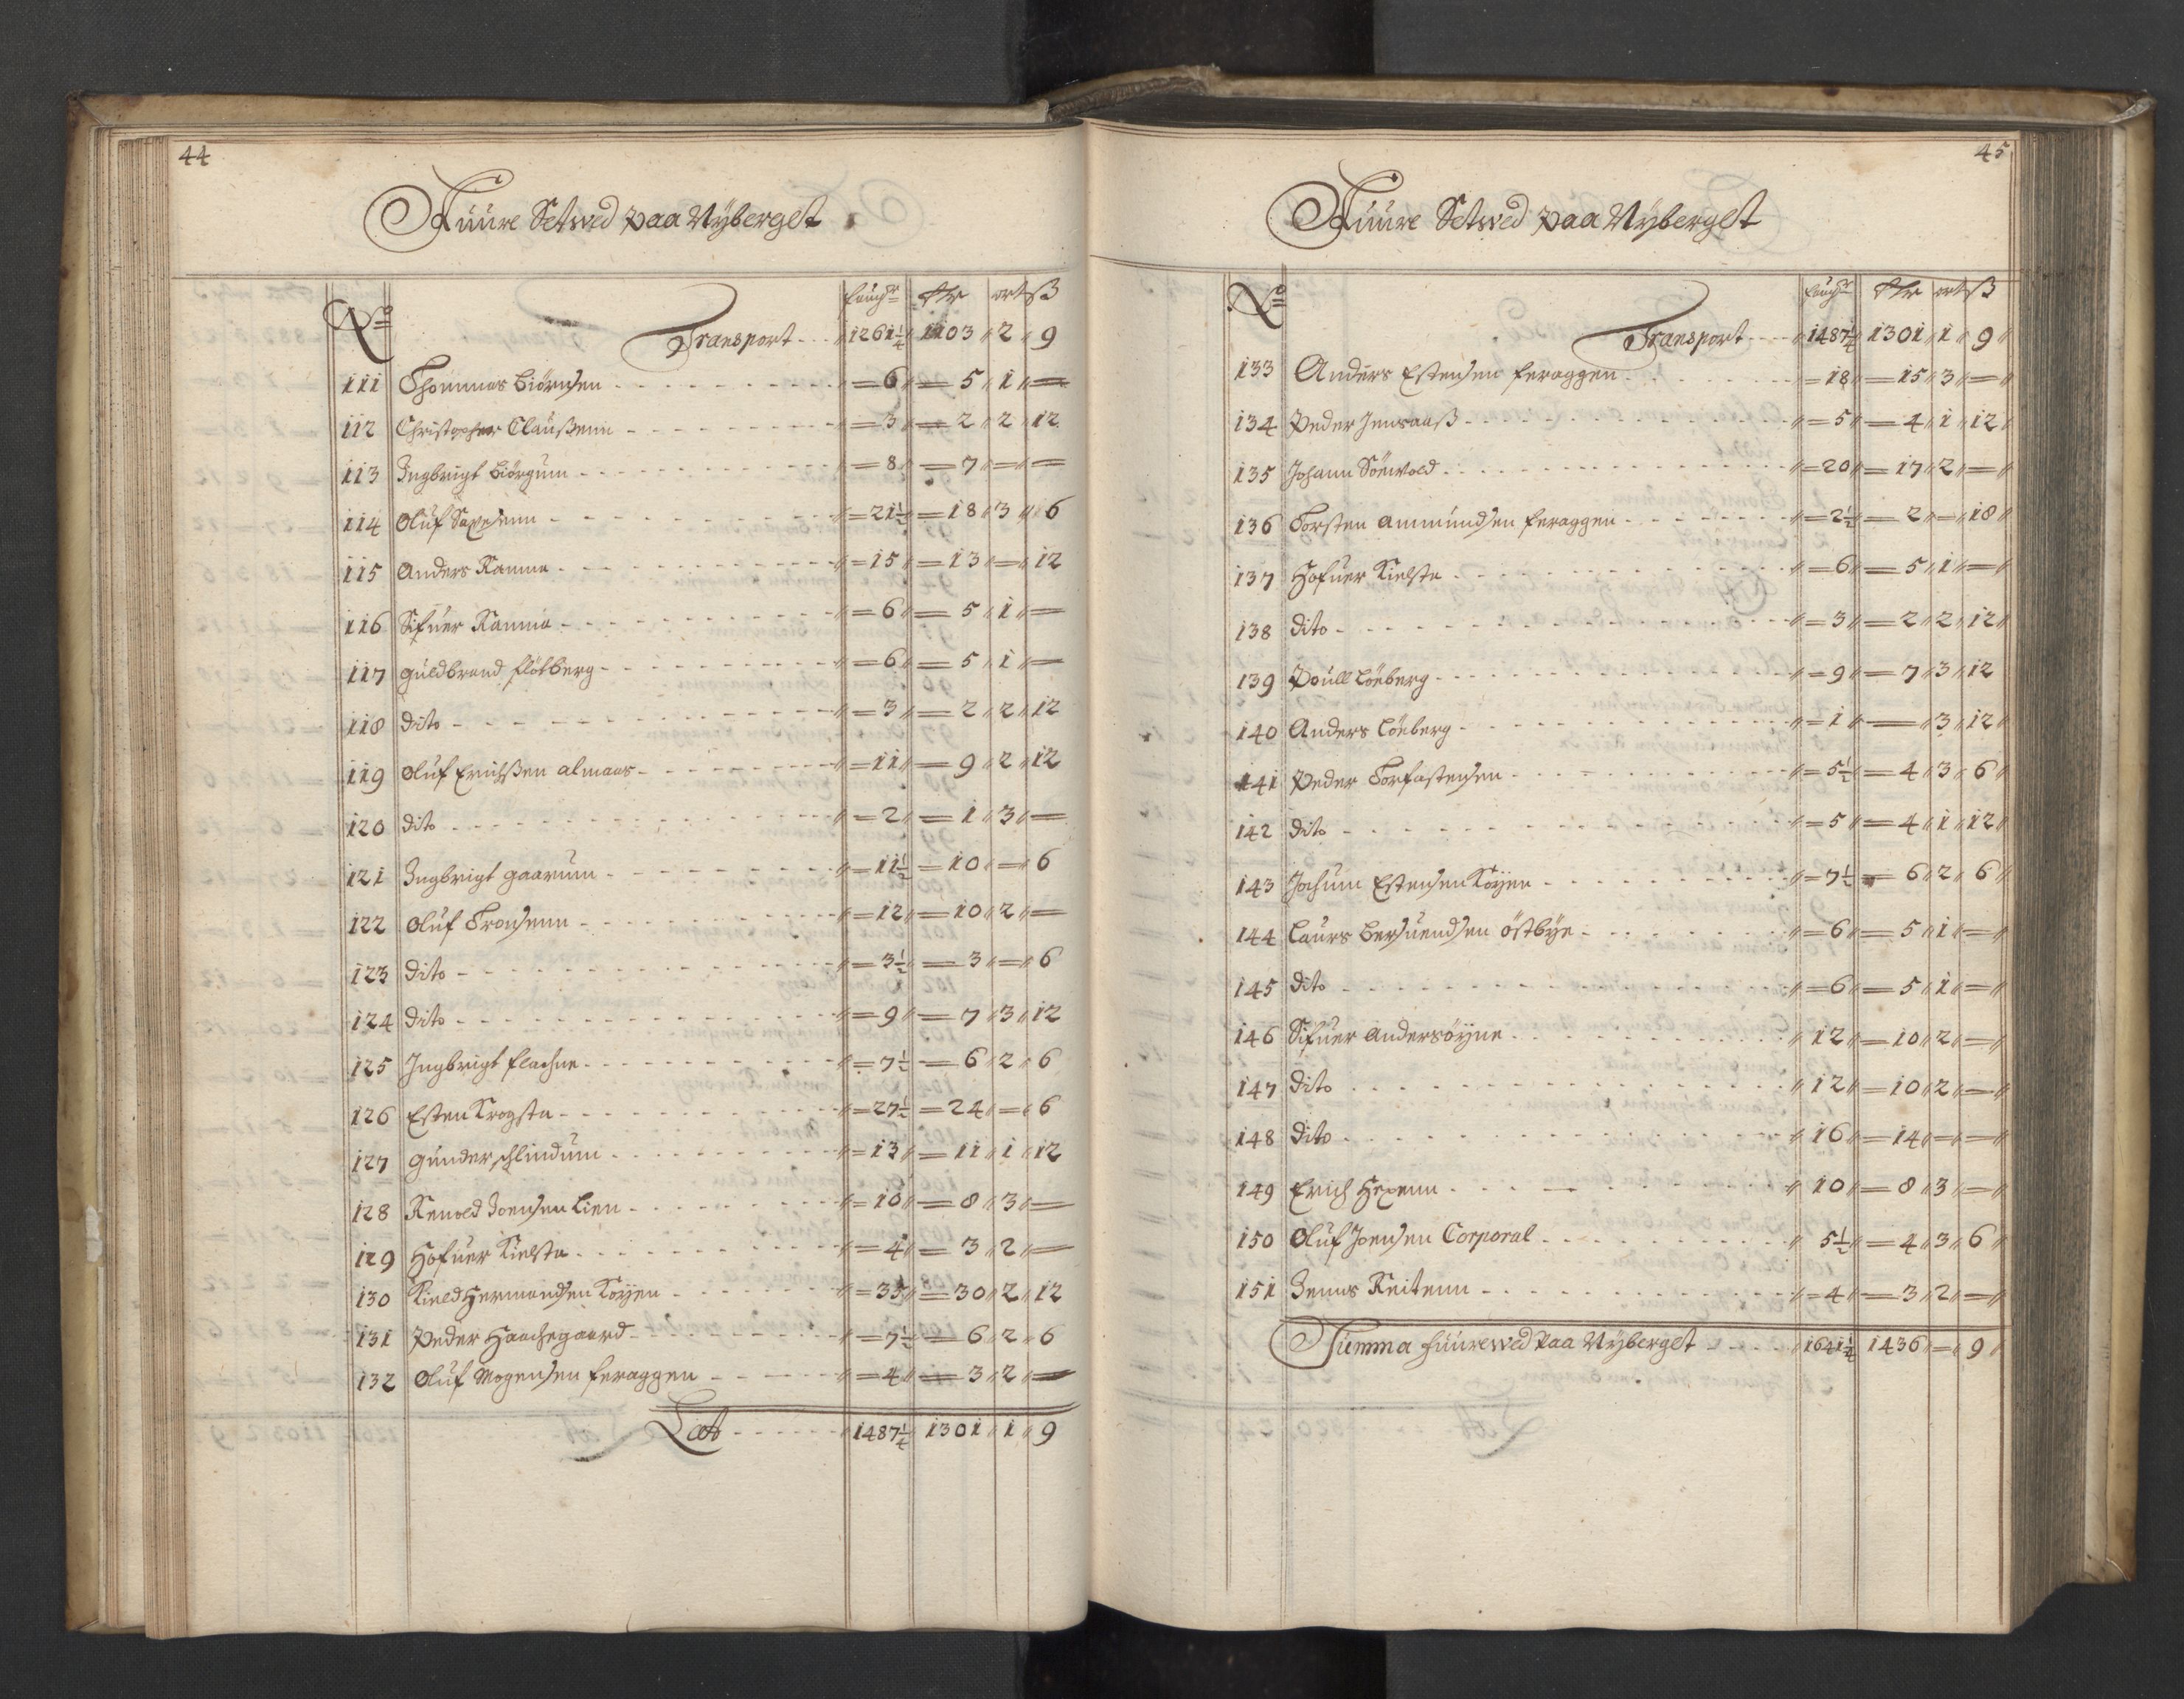 44
Fuure Setwed paa Nÿberget
No Fauchr Rdr ort ß
Transport - - - 1261¼ 1103 2 9
111 Thommas Biörnsen - - - 6 5 1 —
112 Christopher Claüßenn - - - 3 2 2 12
113 Ingbrigt Biörgum - - - 8 7 — —
114 Oluf Saxesenn - - - 21½ 18 3 6
115 Anders Ramme - - - 15 13 — 12
116 Sifuer Ramme - - - 6 5 1 —
117 Guldbrand Flötberg - - - 6 5 1 —
118 dito - - - 3 2 2 12
119 Oluf Erichßen Almaas - - - 11 9 2 12
120 dito - - - 2 1 3 —
121 Ingbrigt Gaarum - - - 11½ 10 — 6
122 Oluf Tronsenn - - - 12 10 2 —
123 dito - - - 3½ 3 — 6
124 dito - - - 9 7 3 12
125 Ingbrigt Flachne - - - 7½ 6 2 6
126 Esten Krogsta - - - 27½ 24 — 6
127 Gunder Schlindum - - - 13 11 1 12
128 Renold Joensen Lien - - - 10 8 3 —
129 Hofuer Kielsta - - - 4 3 2 —
130 Kield Hermandsen Koÿen - - - 35 30 2 12
131 Peder Haachegaard - - - 7½ 6 2 6
132 Oluf Mogensen Feraggen - - - 4 3 2 —
Lat - - - 1487¼ 1301 1 9
45
Fuure Setwed paa Nÿberget
No Fauchr Rdr ort ß
Transport - - - 1487¼ 1301 1 9
133 Anders Estensen Feraggen - - - 18 15 3 —
134 Peder Jensaaß - - - 5 4 1 12
135 Johann Sörwold - - - 20 17 2 —
136 Torsten Ammundsen Feraggen - - - 2½ 2 — 18
137 Hofuer Kielsta - - - 6 5 1 —
138 dito - - - 3 2 2 12
139 Poull Löeberg - - - 9 7 3 12
140 Anders Löeberg - - - 1 — 3 12
141 Peder Torfastensen - - - 5½ 4 3 6
142 dito - - - 5 4 1 12
143 Jochum Estensen Koÿen - - - 7½ 6 2 6
144 Laurs Bersuendsen Östbÿe - - - 6 5 1 —
145 dito - - - 6 5 1 —
146 Sifuer Andersöÿne - - - 12 10 2 —
147 dito - - - 12 10 2 —
148 dito - - - 16 14 — —
149 Erich Hexenn - - - 10 8 3 —
150 Oluf Joensen Corporal - - - 5½ 4 3 6
151 Jenns Reitenn - - - 4 3 2 —
Summa Fuurewed paa Nÿberget - - - 1641¼ 1436 — 9